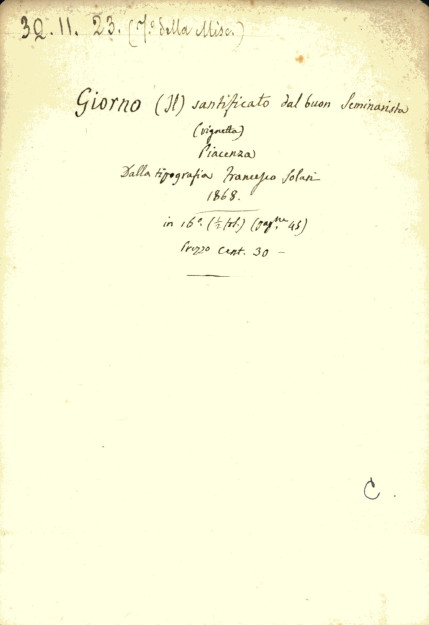 32. 11. 23. (7.º della Misc.)
Giorno (Il) santificato dal buon Seminarista
(vignetta)
Piacenza
Dalla tipografia Francesco Solari
1868.
in 16º. (½ fol.) (pag.ne 45)
Prezzo Cent. 30 –
C.